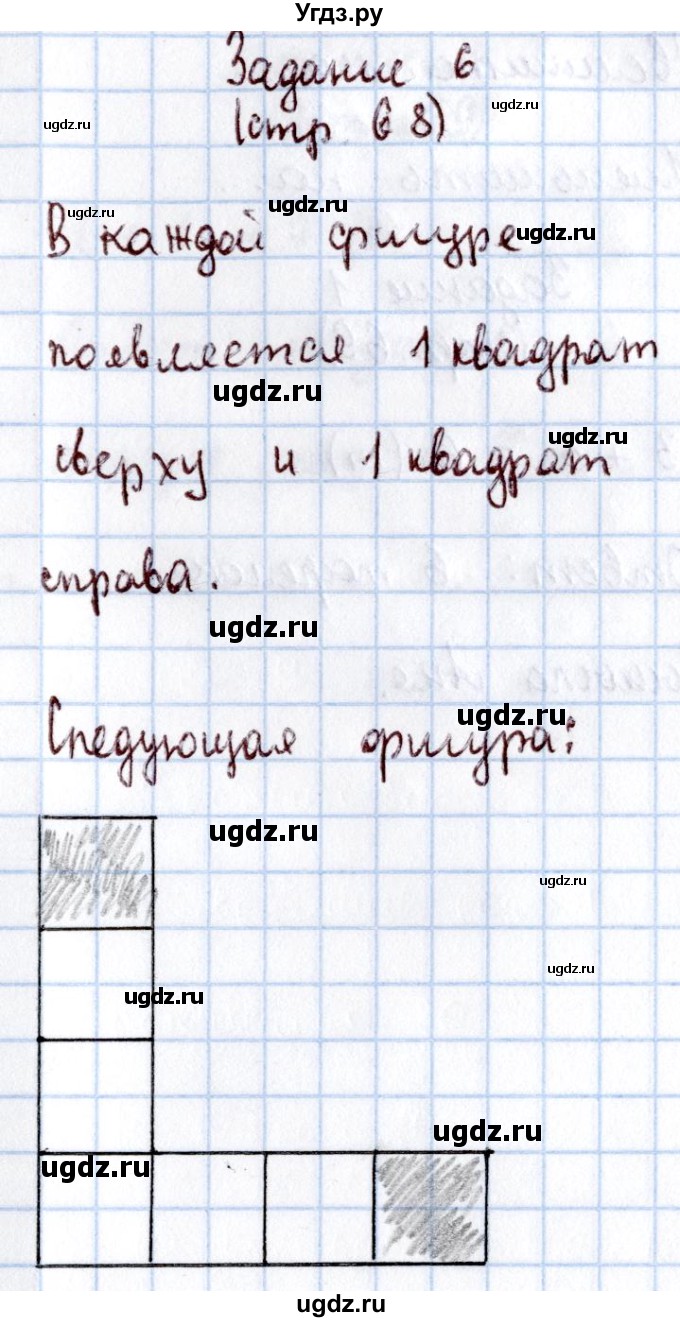 Угдз.ру
Задание 6
ugdz.ru
ugdz.ru
(стр. 68)
ugdz.ru
ugdz.ru
В каждой фигуре
ugdz.ru
появляется 1 квадрат
ugdz.ru
ugdz.ru
сверху и 1 квадрат
справа.
ugdz.ru
ugdz.ru
Следующая фигура:
ugdz.ru
ugdz.ru
ugdz.ru
ugdz.ru
ugdz.ru
ugdz.ru
ugdz.ru